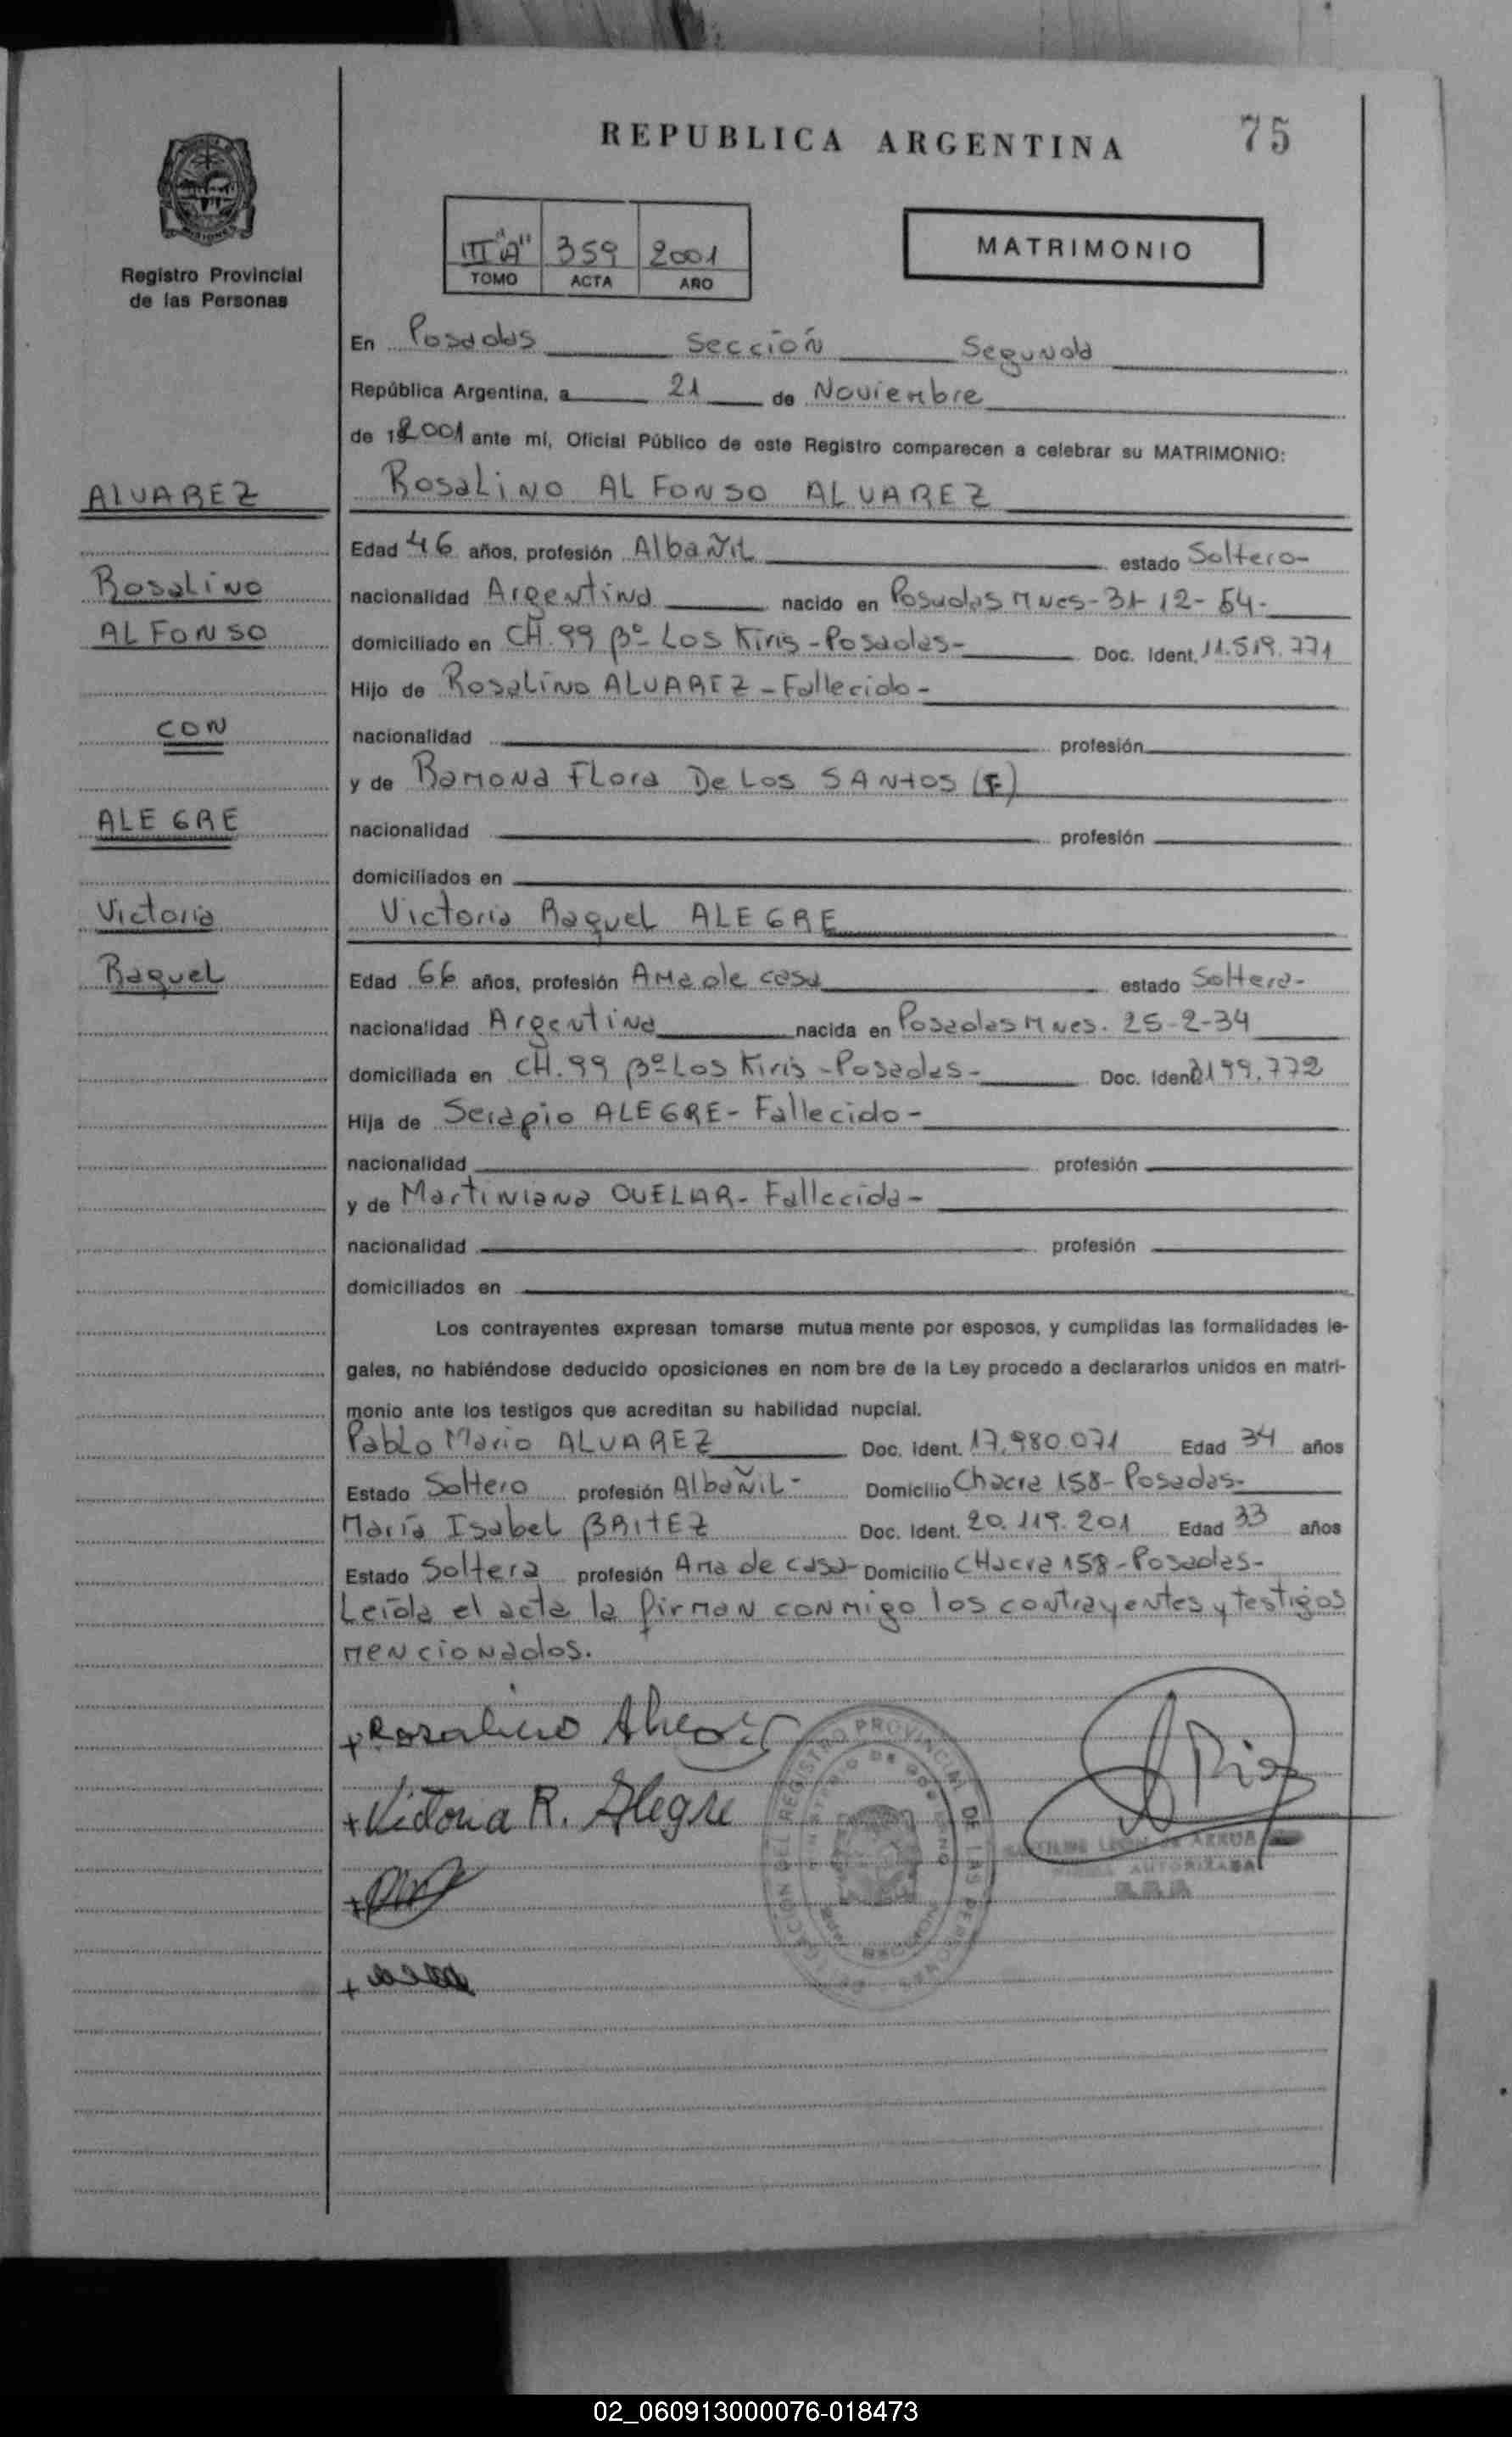 REPUBLICA ARGENTINA
75
Registro Provincial
de las Personas
III "A" 359 2001
TOMO ACTA AÑO
MATRIMONIO
En Posadas Sección Segunda
República Argentina, a 21 de Noviembre
de 2001 ante mí, Oficial Público de este Registro comparecen a celebrar su MATRIMONIO:
ALVAREZ
Rosalino ALFONSO ALVAREZ
Edad 46 años, profesión Albañil estado Soltero-
Rosalino
nacionalidad Argentina nacido en Posadas Mnes-31-12-54-
ALFONSO
domiciliado en CH.99 Bº Los Kiris-Posadas- Doc. Ident. 11.519.771
Hijo de Rosalino ALVAREZ-Fallecido-
CON
nacionalidad profesión
y de Ramona Flora De Los SANtOS (F)
ALEGRE
nacionalidad profesión
domiciliados en
Victoria
Victoria Raquel ALEGRE
Raquel
Edad 66 años, profesión Ama de casa estado Soltera-
nacionalidad Argentina nacida en Posadas Mnes. 25-2-34
domiciliada en CH.99 Bº Los Kiris-Posadas- Doc. Ident. 199.772
Hija de Serapio ALEGRE-Fallecido-
nacionalidad profesión
y de Martiniana OUELAR-Fallecida-
nacionalidad profesión
domiciliados en
Los contrayentes expresan tomarse mutua mente por esposos, y cumplidas las formalidades le-
gales, no habiéndose deducido oposiciones en nom bre de la Ley procedo a declararlos unidos en matri-
monio ante los testigos que acreditan su habilidad nupcial.
Pablo Mario ALVAREZ Doc. Ident. 17.980.071 Edad 34 años
Estado Soltero profesión Albañil- Domicilio Chacra 158-Posadas-
María Isabel BRItEZ Doc. Ident. 20.119.201 Edad 33 años
Estado Soltera profesión Ama de casa- Domicilio CHacra 158-Posadas-
Leída el acta la firman conmigo los contrayentes y testigos
mencionados.
+Rosalino Alvarez
+Victoria R. Alegre
REGISTRO PROVINCIAL DE LAS PERSONAS
AUTORIZADA
02_060913000076-018473